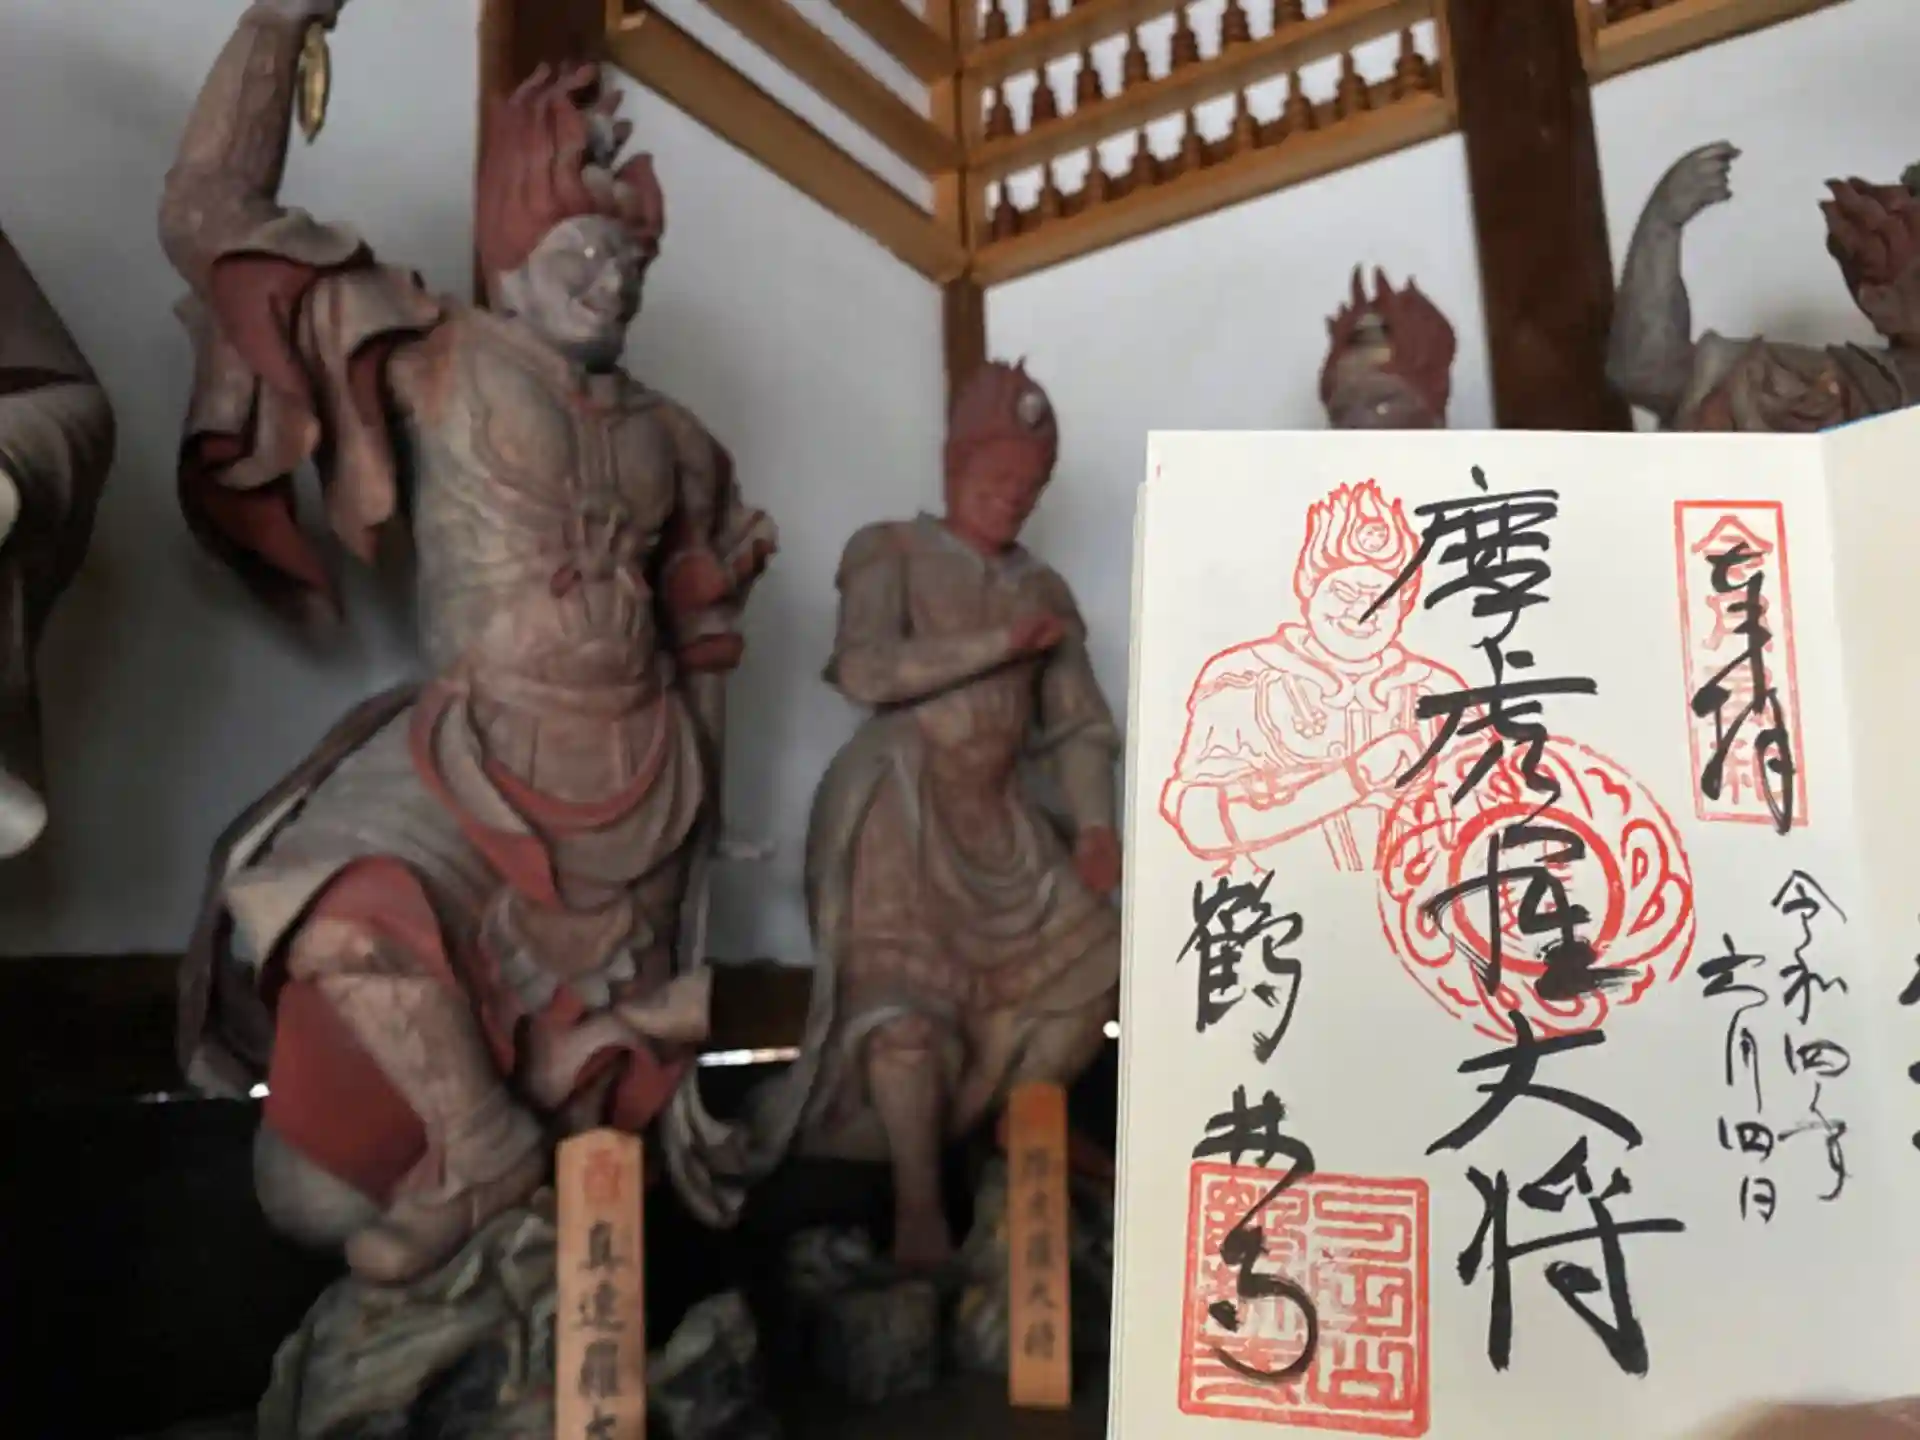 真達羅大
羅大将
奉拝
令和四年
六月四日
摩虎羅大将
鶴林寺